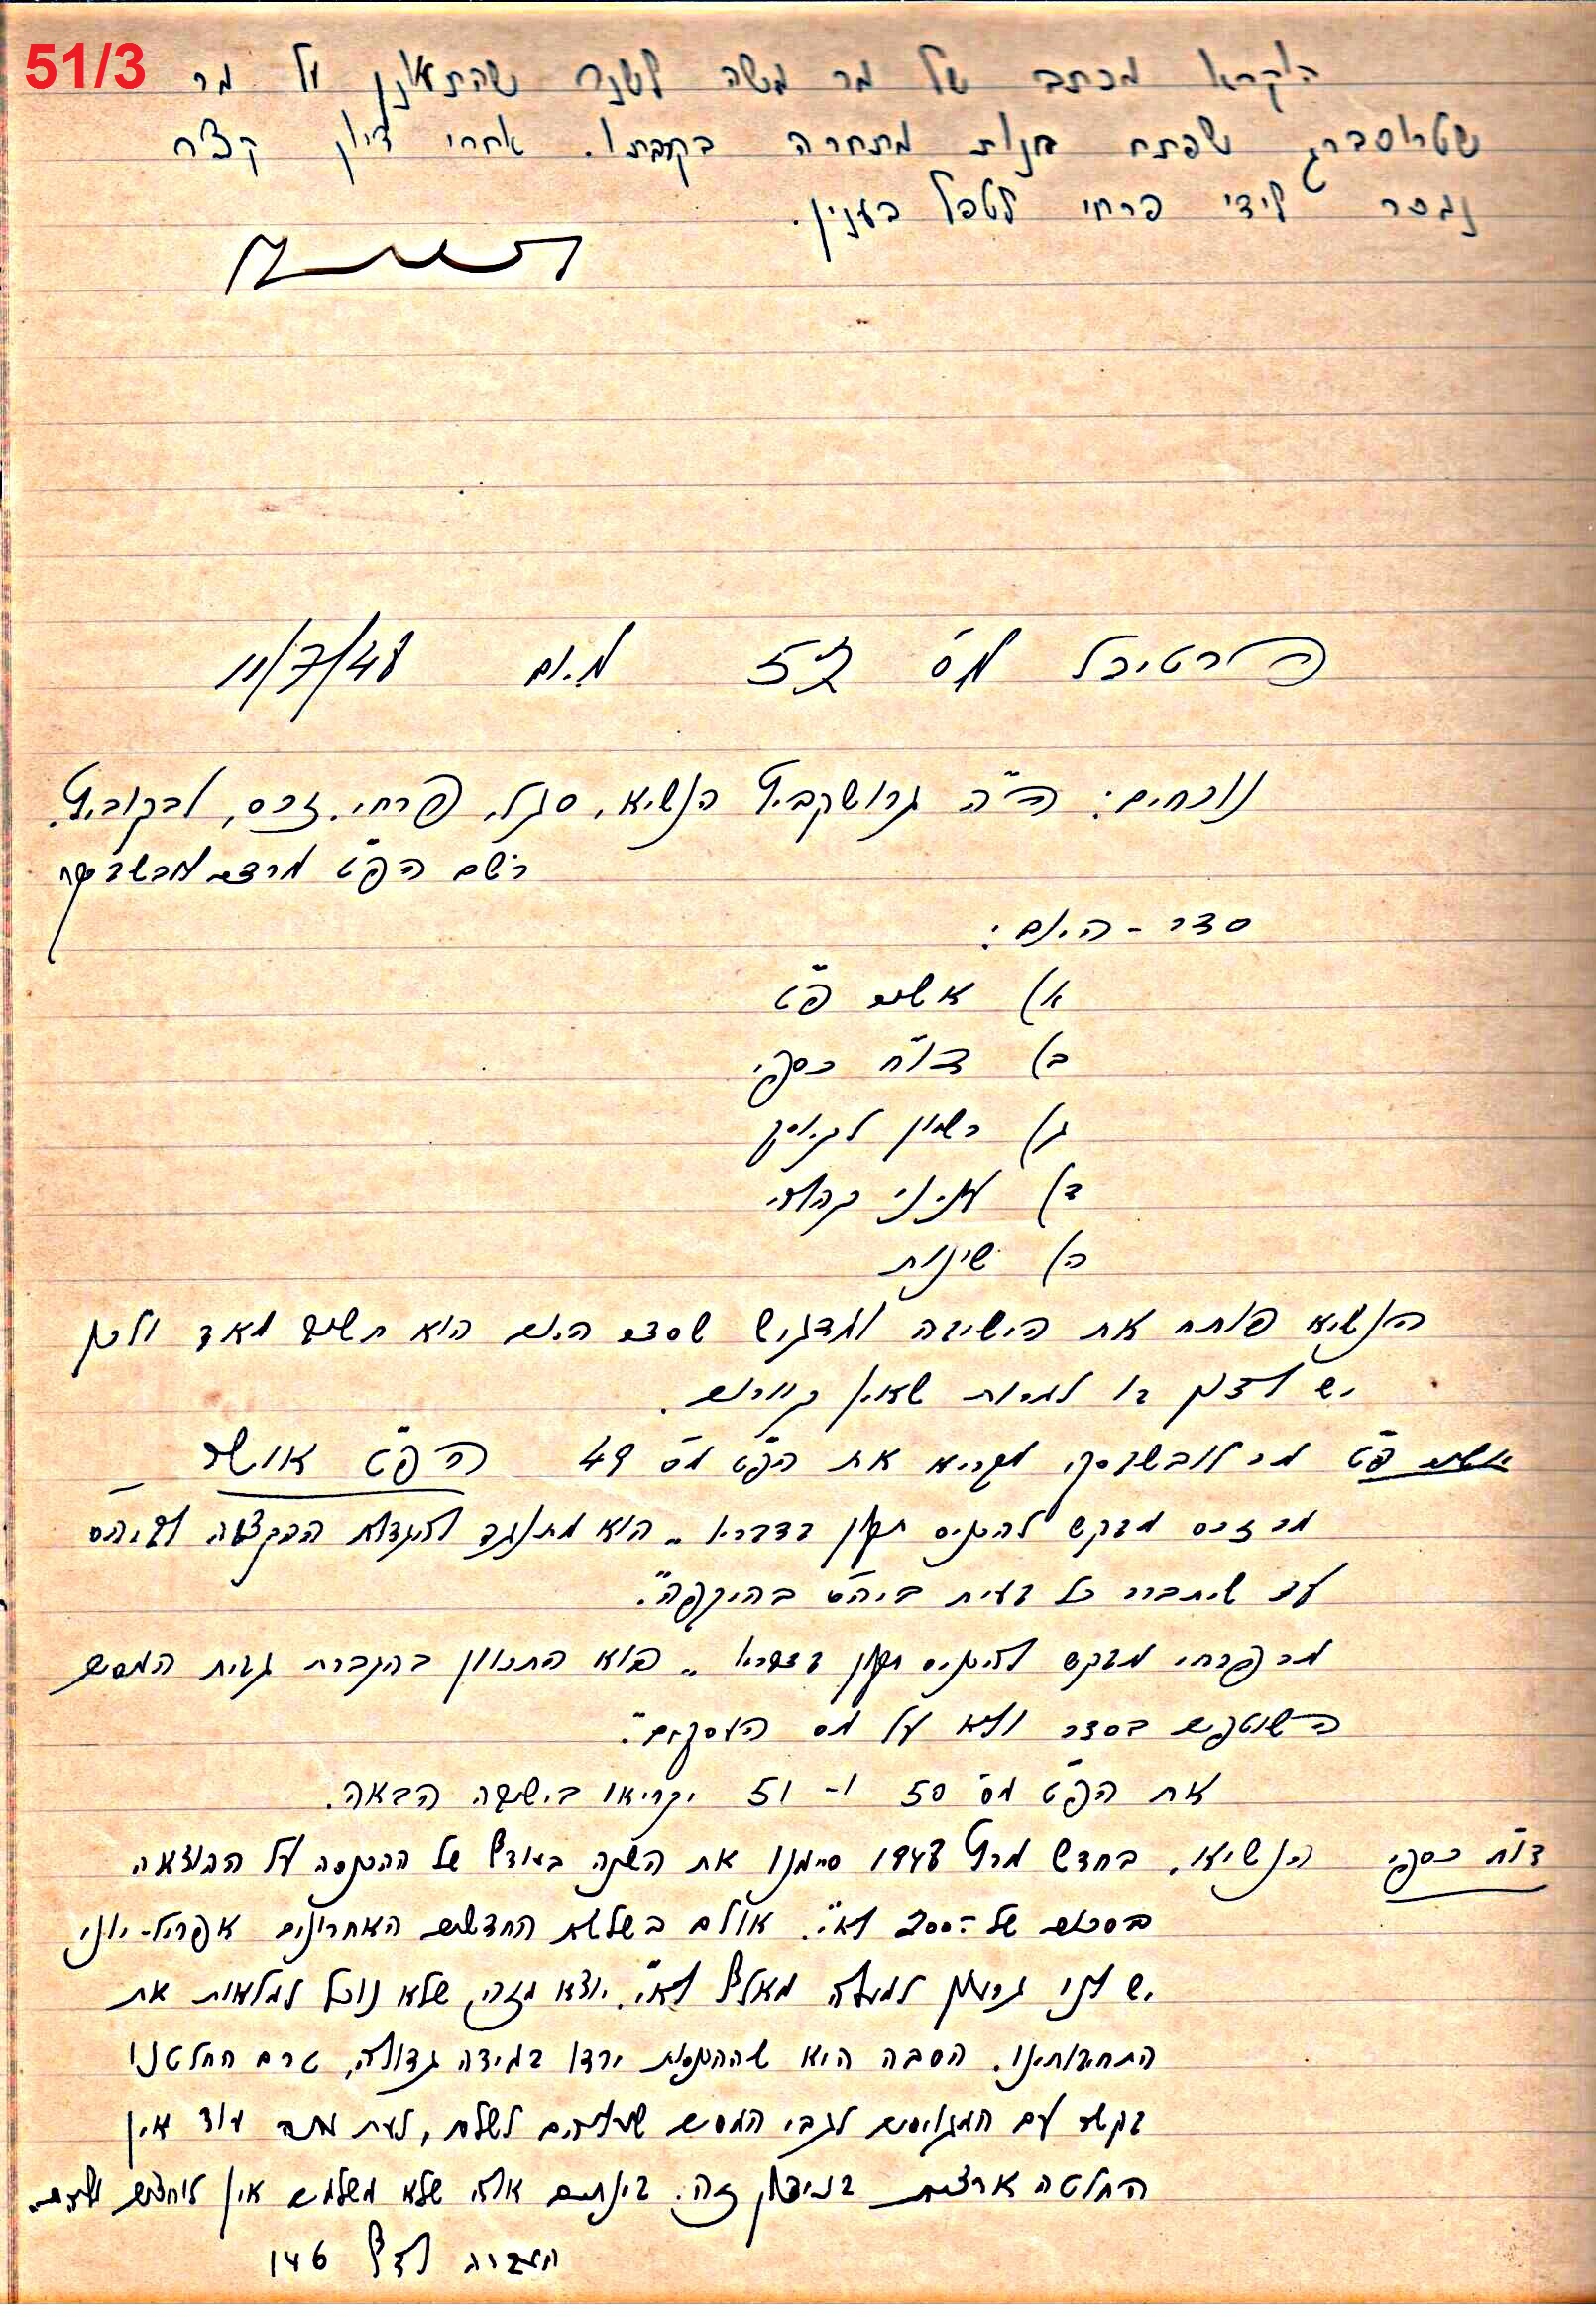 51/3
הוקרא מכתב של מר משה לשנר שהתאונן על מר
שטרוסברג שפתח חנות מתחרה בקרבתו. אחרי דיון קצר
נמסר לידי פרחי לטפל בענין.
פרטיכל מס' 52 מיום 11/7/48
נוכחים: ה"ה גרושקביץ הנשיא, סגל, פרחי, זכס, לבקוביץ.
רשם הפ"ט מרדכי
סדר - היום:
א) אשור פ"ט
ב) דו"ח כספי
ג) רשיון לקיוסק
ד) עניני קהילה
ה) שונות
הנשיא פותח את הישיבה ומדגיש שסדר היום הוא חשוב מאד ולכן
יש לדון בו למרות שאין קוורום.
אשור פ"ט מר לובשבסקי מקריא את הפ"ט מס' 49 הפ"ט אושר
מר זכס מבקש להכניס תקון בדבריו "הוא מתנגד להגדלת ההקצבה לביה"ס
עד שיתברר כל בעית ביה"ס בהיקפה".
מר פרחי מבקש להכניס תקון בדבריו "הוא התכוון בהגברת גבית המסים
השוטפים בסדר ולא על מס העסקים".
את הפ"ט מס' 50 ו- 51 יקריאו בישיבה הבאה.
דו"ח כספי הנשיא. בחדש מרץ 1948 סיימנו את השנה בעודף של ההכנסה על ההוצאה
בסכום של 200.- לא"י. אולם בשלשת החדשים האחרונים אפריל-יוני
יש לנו גרעון למעלה מאלף לא"י. יוצא מזה, שלא נוכל למלאות את
התחיבותינו. הסבה היא שההכנסות ירדו במידה גדולה, טרם החלטנו
בקשר עם המגויסים לגבי המסים שעליהם לשלם, לעת עתה עוד אין
החלטה ארצית בנידון זה. בינתים אלה שלא משלמים אין לוחצים עליהם.
העברה לדף 146